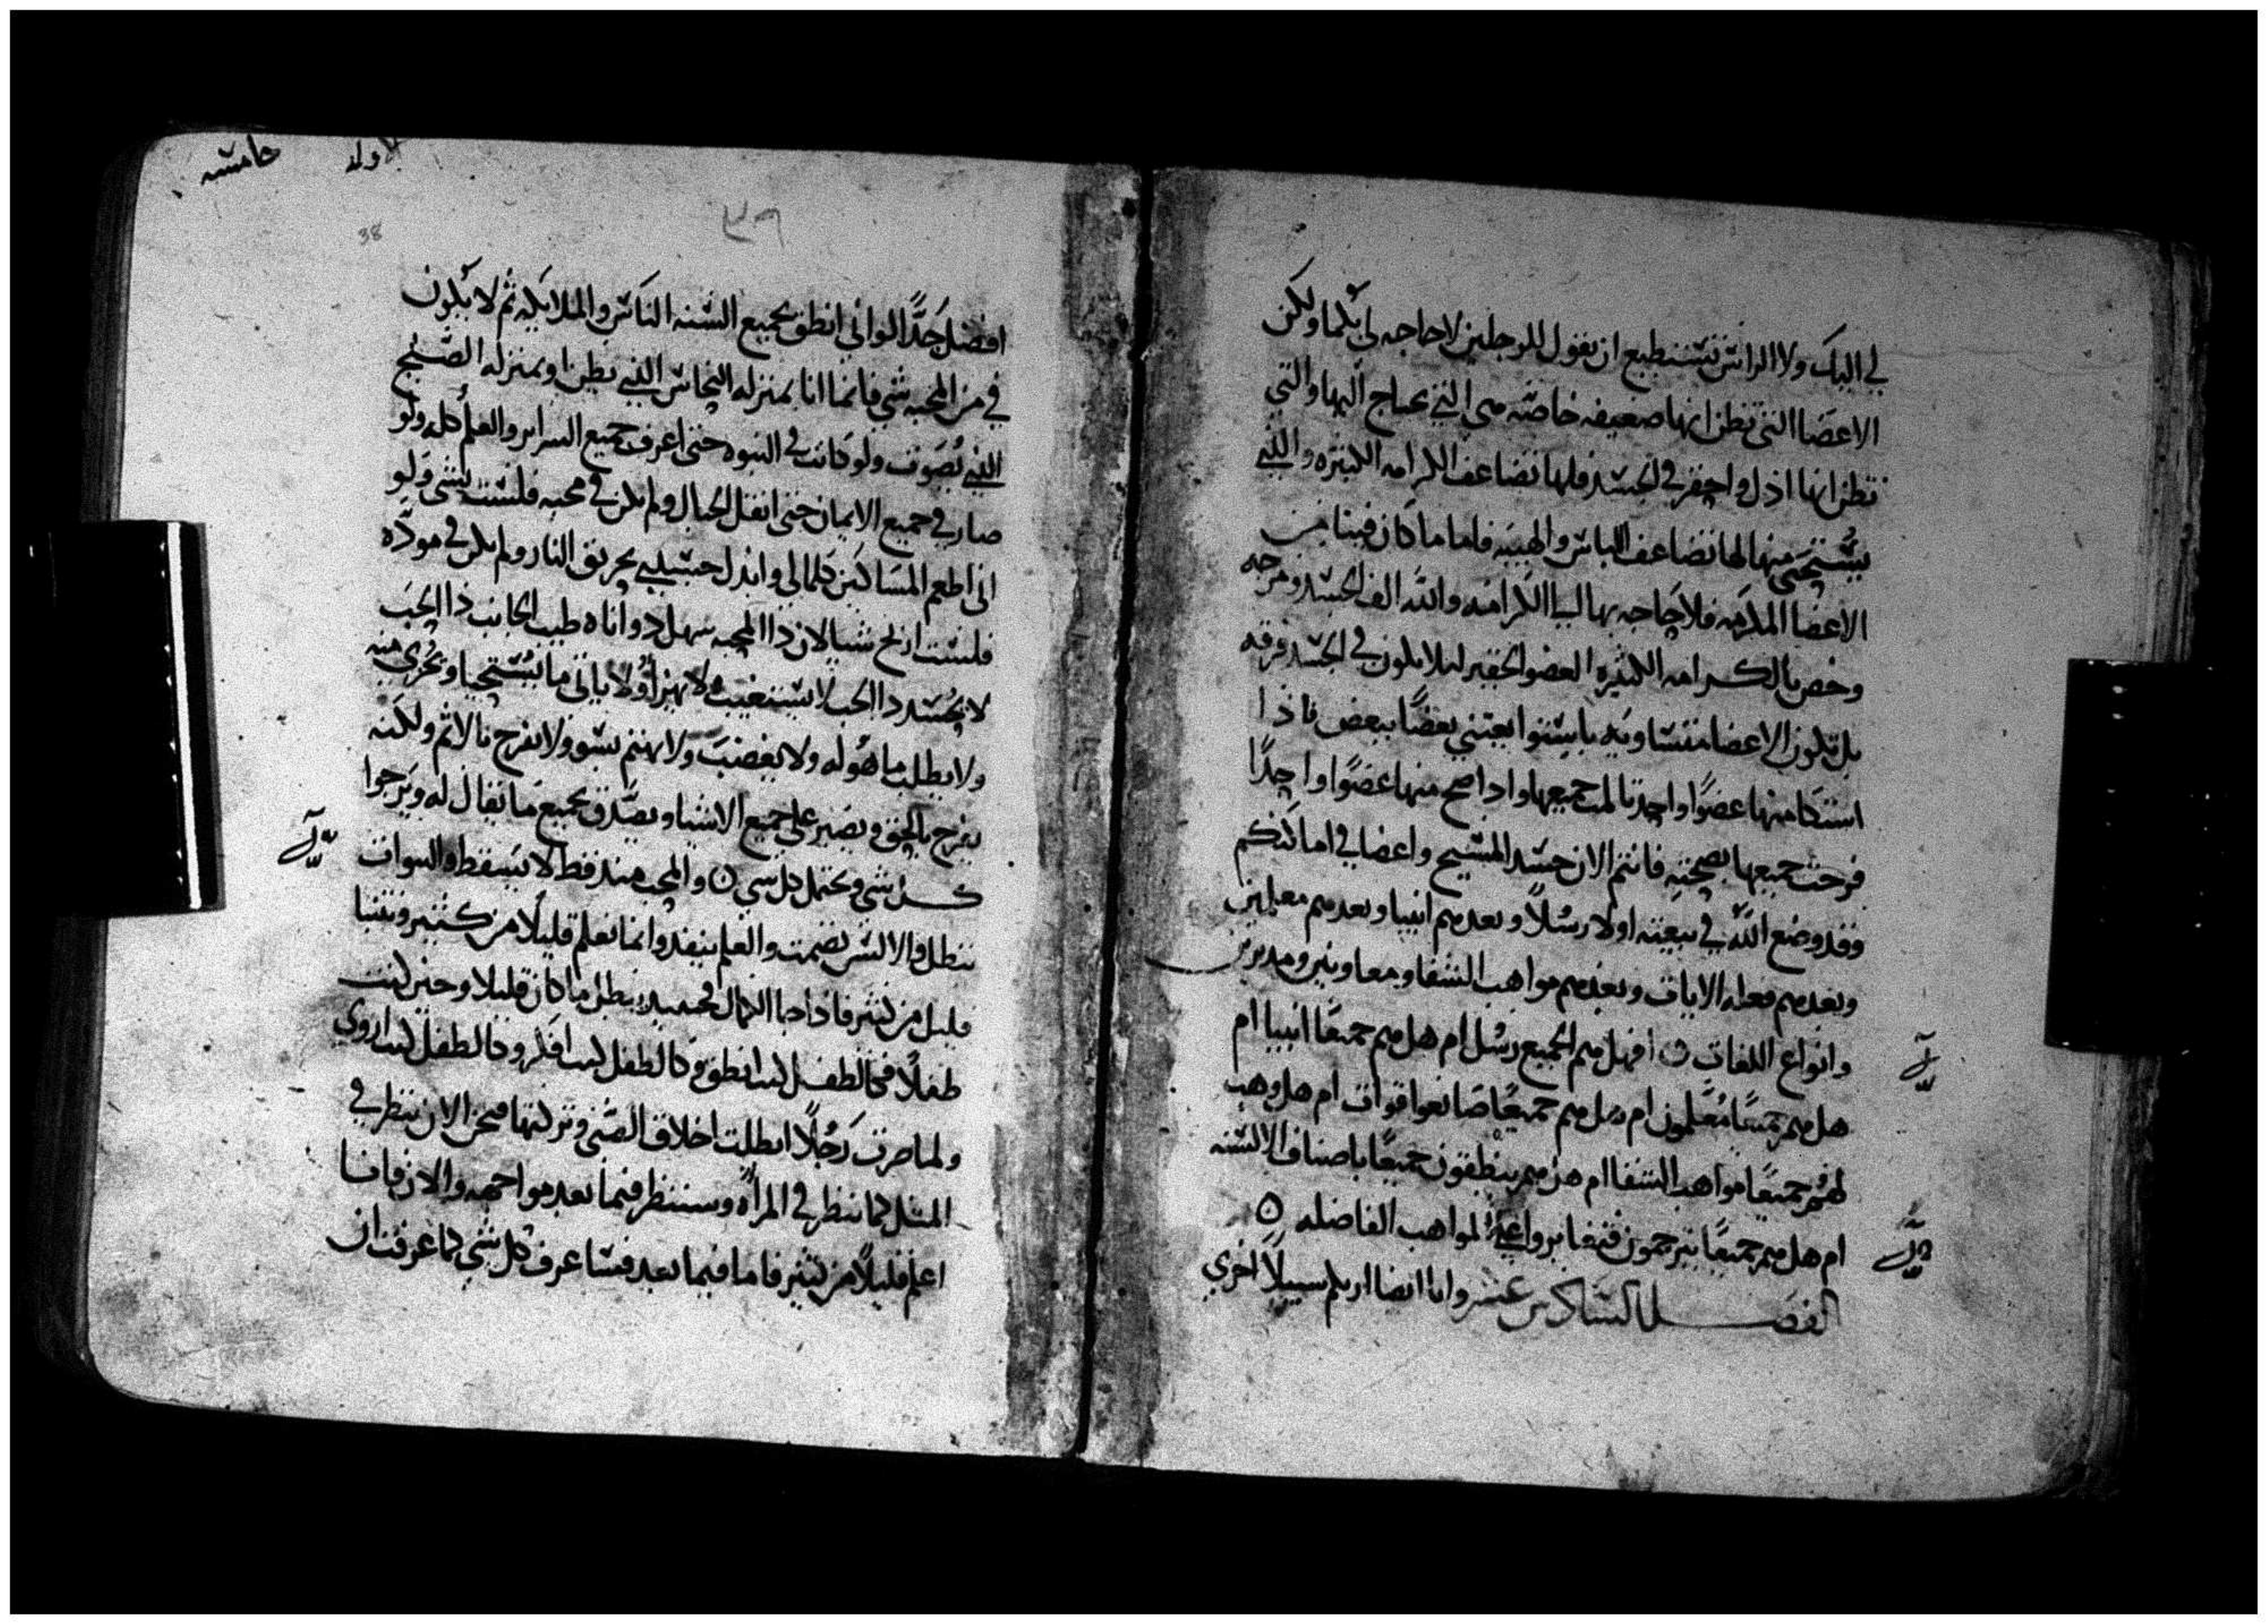 لي اليك ولا الراس تستطيع ان تقول للرجلين لا حاجه لي بكما ولكن
الاعضا التي تظن انها ضعيفه خاصه هي التي يحتاج اليها والتي
تظن انها اذل واحقر في الجسد فلها تضاعف الكرامه الكثيره والتي
يستحى منها لها تضاعف اللباس والهيبه فاما ما كان فينا من
الاعضا المكرمه فلا حاجه بها الي الكرامه والله الف الجسد ومزجه
وخص بالكرامه الكثيره العضو الحقير ليلا يكون في الجسد فرقه
بل تكون الاعضا متساويه باستوا يعتني بعضًا ببعض فاذا
اشتكا منها عضوًا واحد تالمت جميعها واذا صح منها عضوًا واحدًا
فرحت جميعها بصحته فانتم الان جسد المسيح واعضا في اماكنكم
وقد وضع الله في بيعته اولا رسلاً وبعدهم انبيا وبعدهم معلمين
وبعدهم فعله الايات وبعدهم مواهب الشفا ومعاونين ومدبرين
وانواع اللغات ٥ افهل هم الجميع رسل ام هل هم جميعًا انبيا ام
هل هم جميعًا معلمون ام هل هم جميعًا صانعوا قوات ام هل وهب
لهم جميعًا مواهب الشفا ام هل هم ينطقون جميعًا باصناف الالسنه
ام هل هم جميعًا يترجمون فتغايروا علي المواهب الفاضله ٥
الفصل السادس عشر وانا ايضا اريكم سبيلاً اخري
٣٩
38
افضل جدًّا لو اني انطق بجميع السنه الناس والملايكه ثم لا يكون
في من المحبه شي فانما انا بمنزله النحاس الذي يطن او بمنزله الصنج
الذي يصوت ولو كانت في النبوه حتى اعرف جميع السراير والعلم كله ولو
صار في جميع الايمان حتى انقل الجبال ولم يكن في محبه فلست بشي ولو
اني اطعم المساكين كلمالي وابذل جسدي بحريق النار ولم يكن في موده
فلست اربح شيا لان ذا المحبه سهل ذو اناه طيب الجانب ذا الحب
لا يحسد ذا الحب لا يستغيث لا يهزأ ولا ياتي ما يستحيا ويخزي منه
ولا يطلب ما هو له ولا يغضب ولا يهتم بسو ولا يفرح بالاثم ولكنه
يفرح بالحق ويصبر على جميع الاشيا ويصدق بجميع ما يقال له ويرجوا
كل شي ويحتمل كل شي ٥ والمحب منذ قط لا يسقط والنبوات
تبطل والالسن تصمت والعلم ينفد وانما نعلم قليلاً من كثير ونتنبا
قليل من كثير فاذا جا الكمال فحينيد يبطل ما كان قليلا وحين كنت
طفلاً فكالطفل كنت انطق وكالطفل كنت افكر وكالطفل كنت اروي
ولما صرت رجلاً ابطلت اخلاق الصبي وتركتها فنحن الان ننظر في
المثل كما ننظر في المرآه وسننظر فيما بعد مواجهه والان فانا
اعلم قليلاً من كثير فاما فيما بعد فساعرف كل شي كما عرفت ان